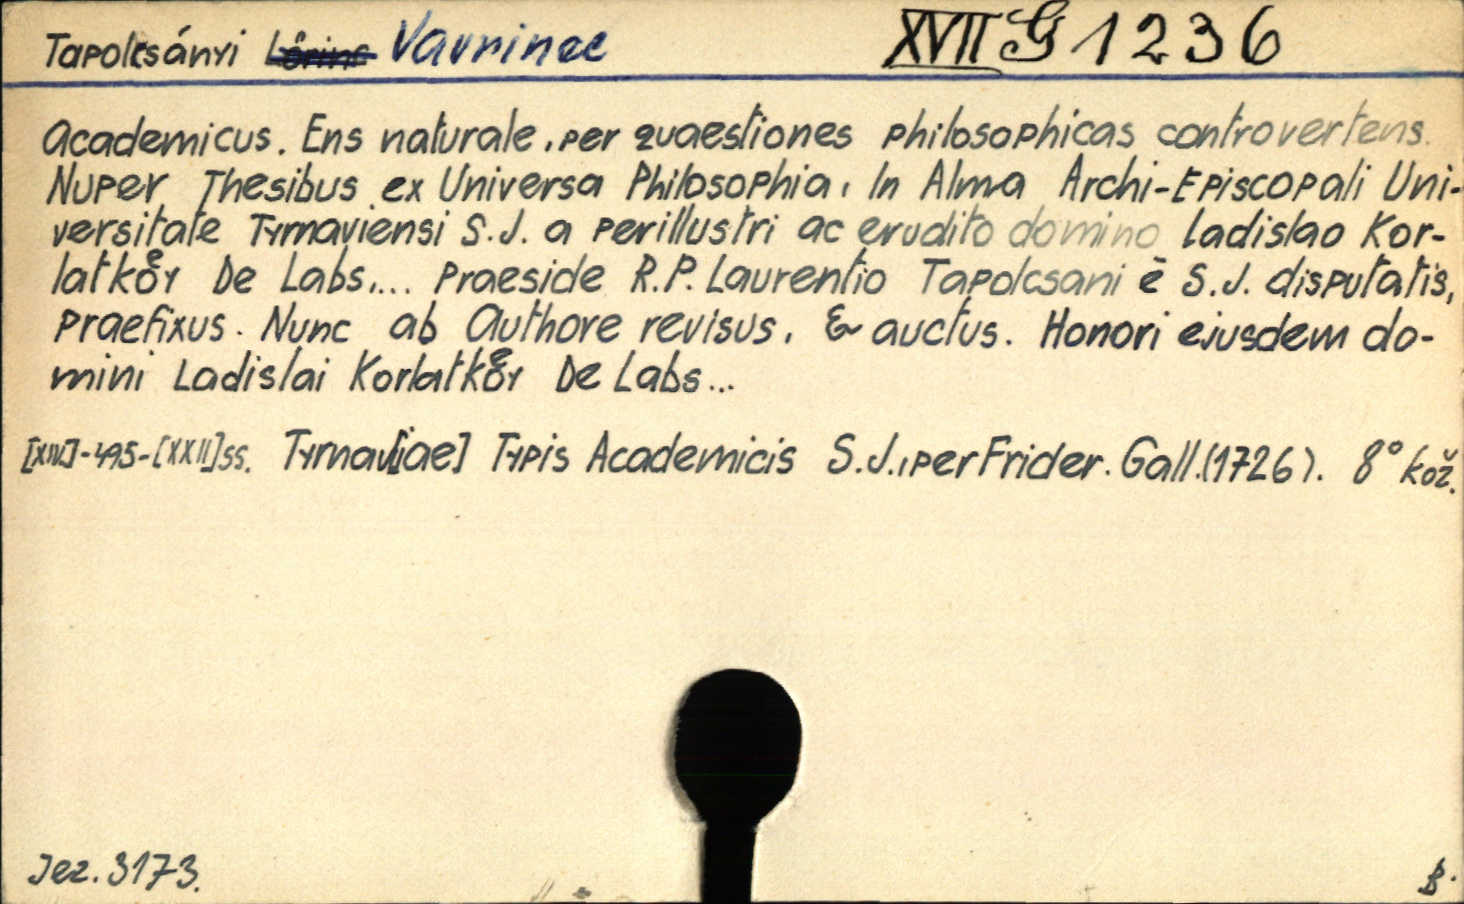 Tapolcsányi Lőrinc Vavrinec XVII G 1236
Academicus. Ens naturale, per quaestiones philosophicas controvertens.
Nuper Thesibus ex Universa Philosophia, In Alma Archi-Episcopali Uni-
versitate Tyrnaviensi S.J. a perillustri ac erudito domino Ladislao Kor-
latkőy De Labs,... Praeside R.P. Laurentio Tapolcsani è S.J. disputatis,
praefixus. Nunc ab Authore revisus, & auctus. Honori ejusdem do-
mini Ladislai Korlatkőy De Labs...
[XIV]-495-[XXII]ss. Tyrnav[iae] Typis Academicis S.J., per Frider. Gall.(1726). 8° kož.
Jez. 3173.
B.